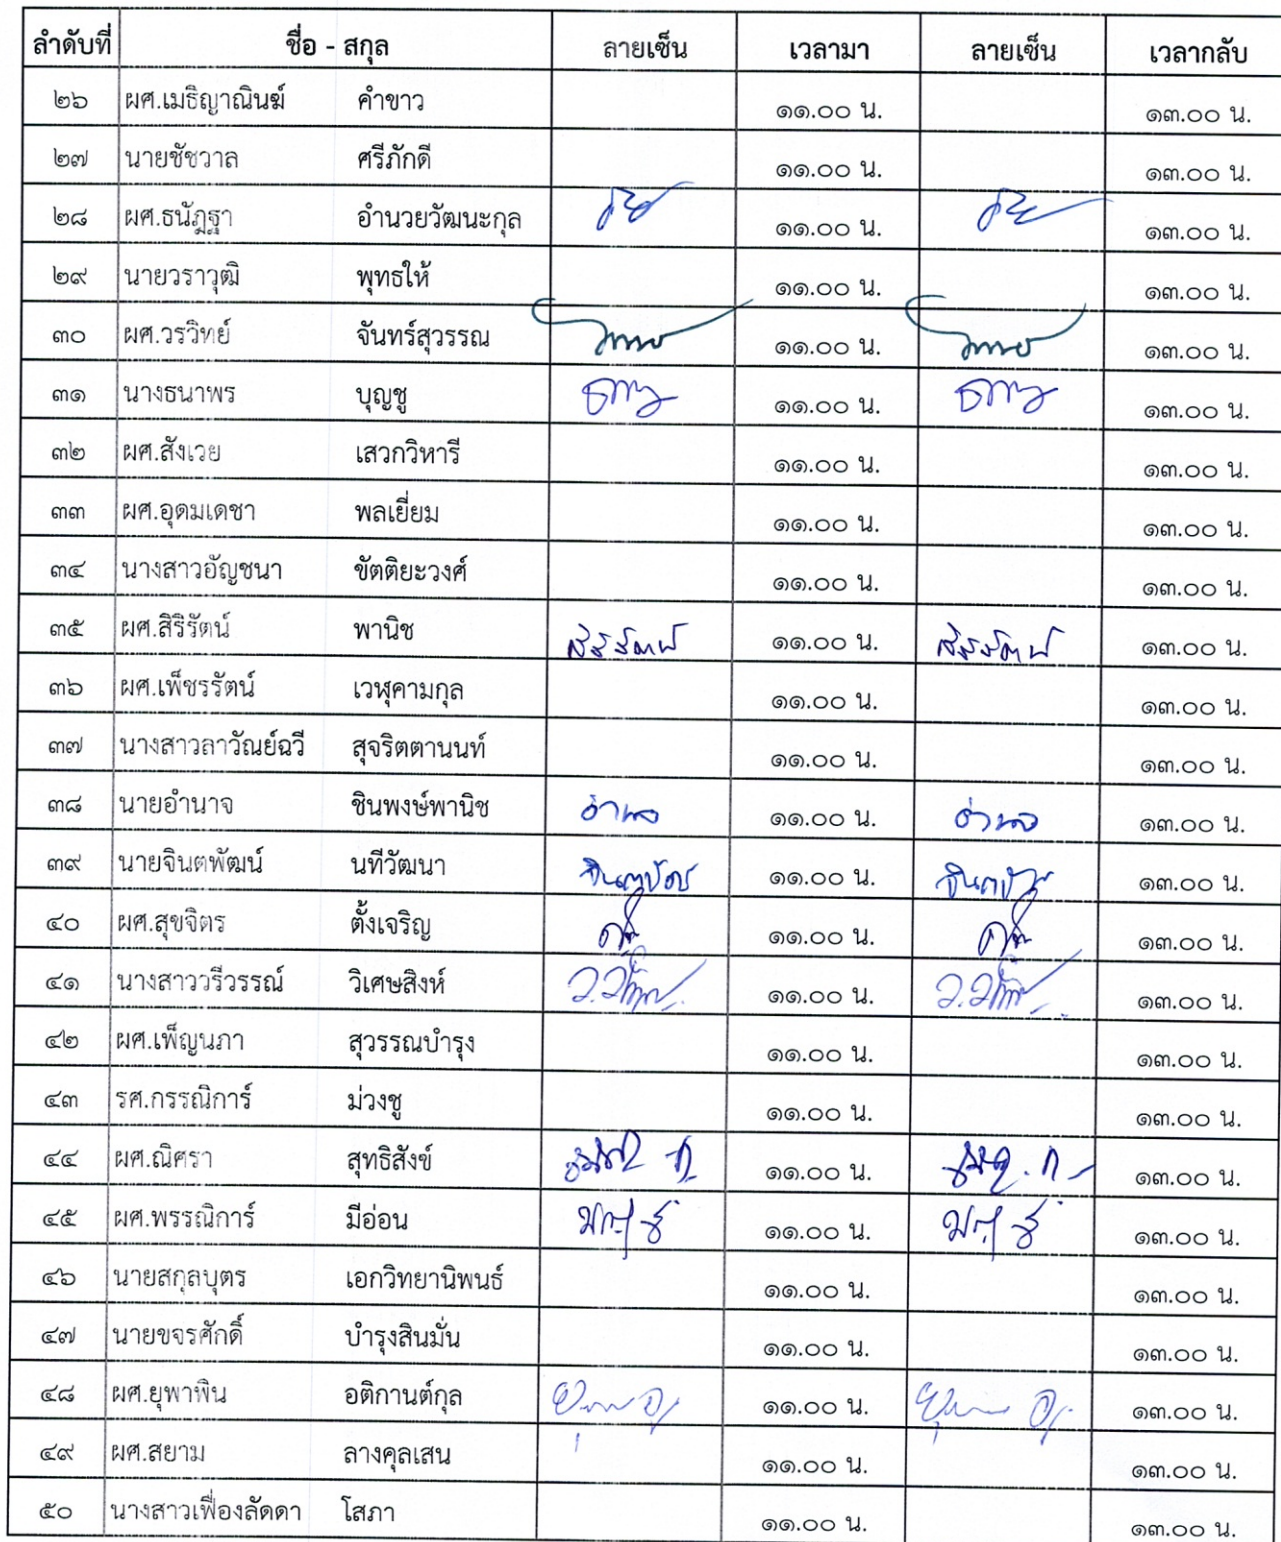 ลำดับที่ ชื่อ - สกุล ลายเซ็น เวลามา ลายเซ็น เวลากลับ
๒๖ ผศ.เมธิญาณินฆ์ คำขาว ๑๑.๐๐ น. ๑๓.๐๐ น.
๒๗ นายชัชวาล ศรีภักดี ๑๑.๐๐ น. ๑๓.๐๐ น.
๒๘ ผศ.ธนัฎฐา อำนวยวัฒนะกุล ๑๑.๐๐ น. ๑๓.๐๐ น.
๒๙ นายวราวุฒิ พุทธให้ ๑๑.๐๐ น. ๑๓.๐๐ น.
๓๐ ผศ.วรวิทย์ จันทร์สุวรรณ ๑๑.๐๐ น. ๑๓.๐๐ น.
๓๑ นางธนาพร บุญชู ๑๑.๐๐ น. ๑๓.๐๐ น.
๓๒ ผศ.สังเวย เสวกวิหารี ๑๑.๐๐ น. ๑๓.๐๐ น.
๓๓ ผศ.อุดมเดชา พลเยี่ยม ๑๑.๐๐ น. ๑๓.๐๐ น.
๓๔ นางสาวอัญชนา ขัตติยะวงศ์ ๑๑.๐๐ น. ๑๓.๐๐ น.
๓๕ ผศ.สิริรัตน์ พานิช สิริรัตน์ ๑๑.๐๐ น. สิริรัตน์ ๑๓.๐๐ น.
๓๖ ผศ.เพ็ชรรัตน์ เวฬุคามกุล ๑๑.๐๐ น. ๑๓.๐๐ น.
๓๗ นางสาวลาวัณย์ฉวี สุจริตตานนท์ ๑๑.๐๐ น. ๑๓.๐๐ น.
๓๘ นายอำนาจ ชินพงษ์พานิช อำนาจ ๑๑.๐๐ น. อำนาจ ๑๓.๐๐ น.
๓๙ นายจินตพัฒน์ นทีวัฒนา จินตพัฒน์ ๑๑.๐๐ น. จินตพัฒน์ ๑๓.๐๐ น.
๔๐ ผศ.สุขจิตร ตั้งเจริญ ๑๑.๐๐ น. ๑๓.๐๐ น.
๔๑ นางสาววรีวรรณ์ วิเศษสิงห์ ๑๑.๐๐ น. ๑๓.๐๐ น.
๔๒ ผศ.เพ็ญนภา สุวรรณบำรุง ๑๑.๐๐ น. ๑๓.๐๐ น.
๔๓ รศ.กรรณิการ์ ม่วงชู ๑๑.๐๐ น. ๑๓.๐๐ น.
๔๔ ผศ.ณิศรา สุทธิสังข์ ๑๑.๐๐ น. ๑๓.๐๐ น.
๔๕ ผศ.พรรณิการ์ มีอ่อน ๑๑.๐๐ น. ๑๓.๐๐ น.
๔๖ นายสกุลบุตร เอกวิทยานิพนธ์ ๑๑.๐๐ น. ๑๓.๐๐ น.
๔๗ นายขจรศักดิ์ บำรุงสินมั่น ๑๑.๐๐ น. ๑๓.๐๐ น.
๔๘ ผศ.ยุพาพิน อติกานต์กุล ๑๑.๐๐ น. ๑๓.๐๐ น.
๔๙ ผศ.สยาม ลางคุลเสน ๑๑.๐๐ น. ๑๓.๐๐ น.
๕๐ นางสาวเฟื่องลัดดา โสภา ๑๑.๐๐ น. ๑๓.๐๐ น.